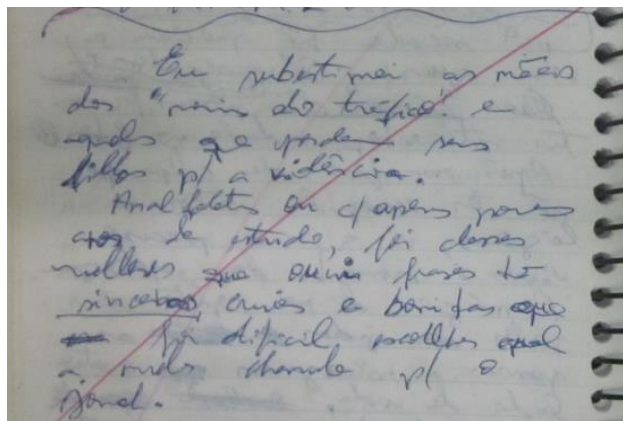 Eu subestimei as mães
dos "reis do tráfico" e
aquelas que perdem seus
filhos p/ a violência.
Analfabetas ou c/ apenas poucos
anos de estudo, foi dessas
mulheres que ouvi frases tão
sinceras cruéis e bonitas que
foi difícil escolher qual
a mais chamada p/ o
jornal.